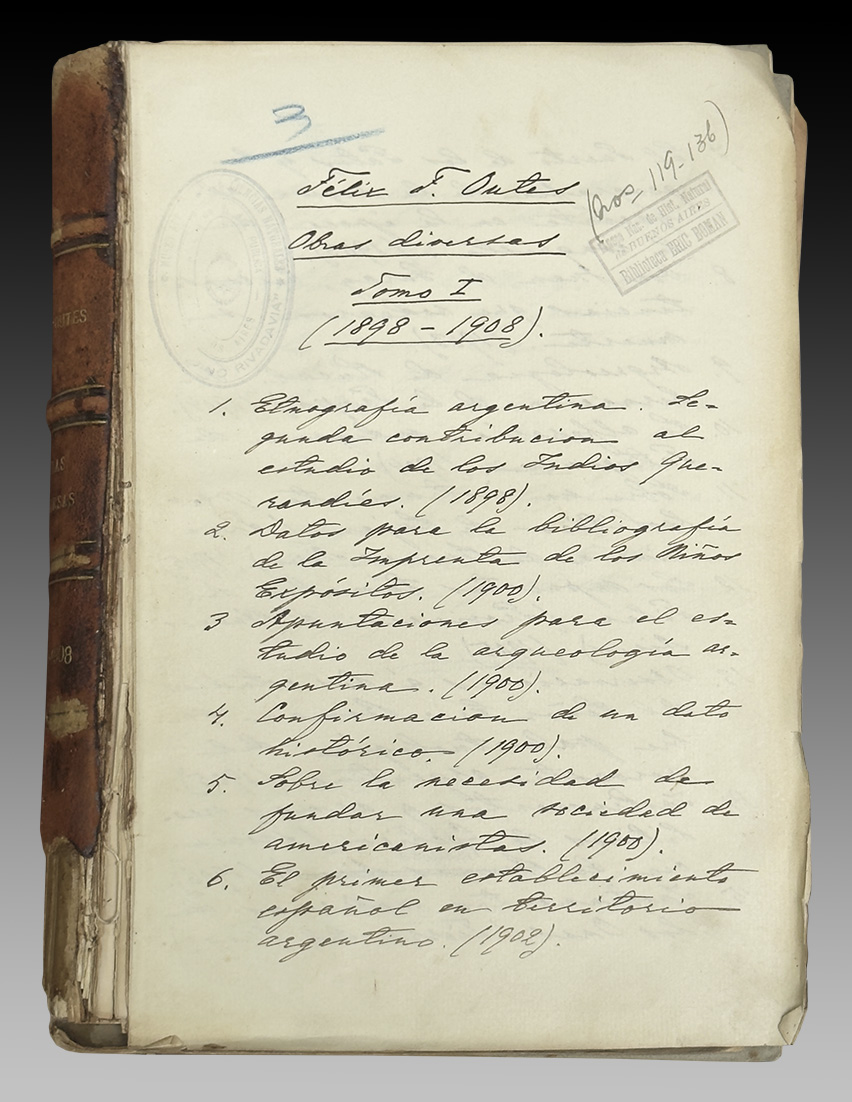 3
Félix F. Outes
Obras diversas
Tomo I
(1898-1908).
119-136)
Museo Nac. de Hist. Natural
BUENOS AIRES
Biblioteca ERIC BOMAN
RIVADAVIA"
1. Etnografía argentina. Se=
gunda contribucion al
estudio de los Indios Que=
randíes. (1898).
2. Datos para la bibliografía
de la Imprenta de los Niños
Expósitos. (1900).
3 Apuntaciones para el es=
tudio de la arqueología ar=
gentina. (1900).
4. Confirmacion de un dato
histórico. (1900).
5. Sobre la necesidad de
fundar una sociedad de
americanistas. (1900).
6. El primer establecimiento
español en territorio
argentino. (1902).